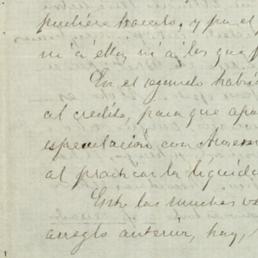 pudiera hacerlo, y por el
ni á ellos ni á los que p
En el segundo habrá
al credito, para que apa
especulación con Acree
al practicar la liquida
Entre las muchas ve
arreglo anterior, hay,